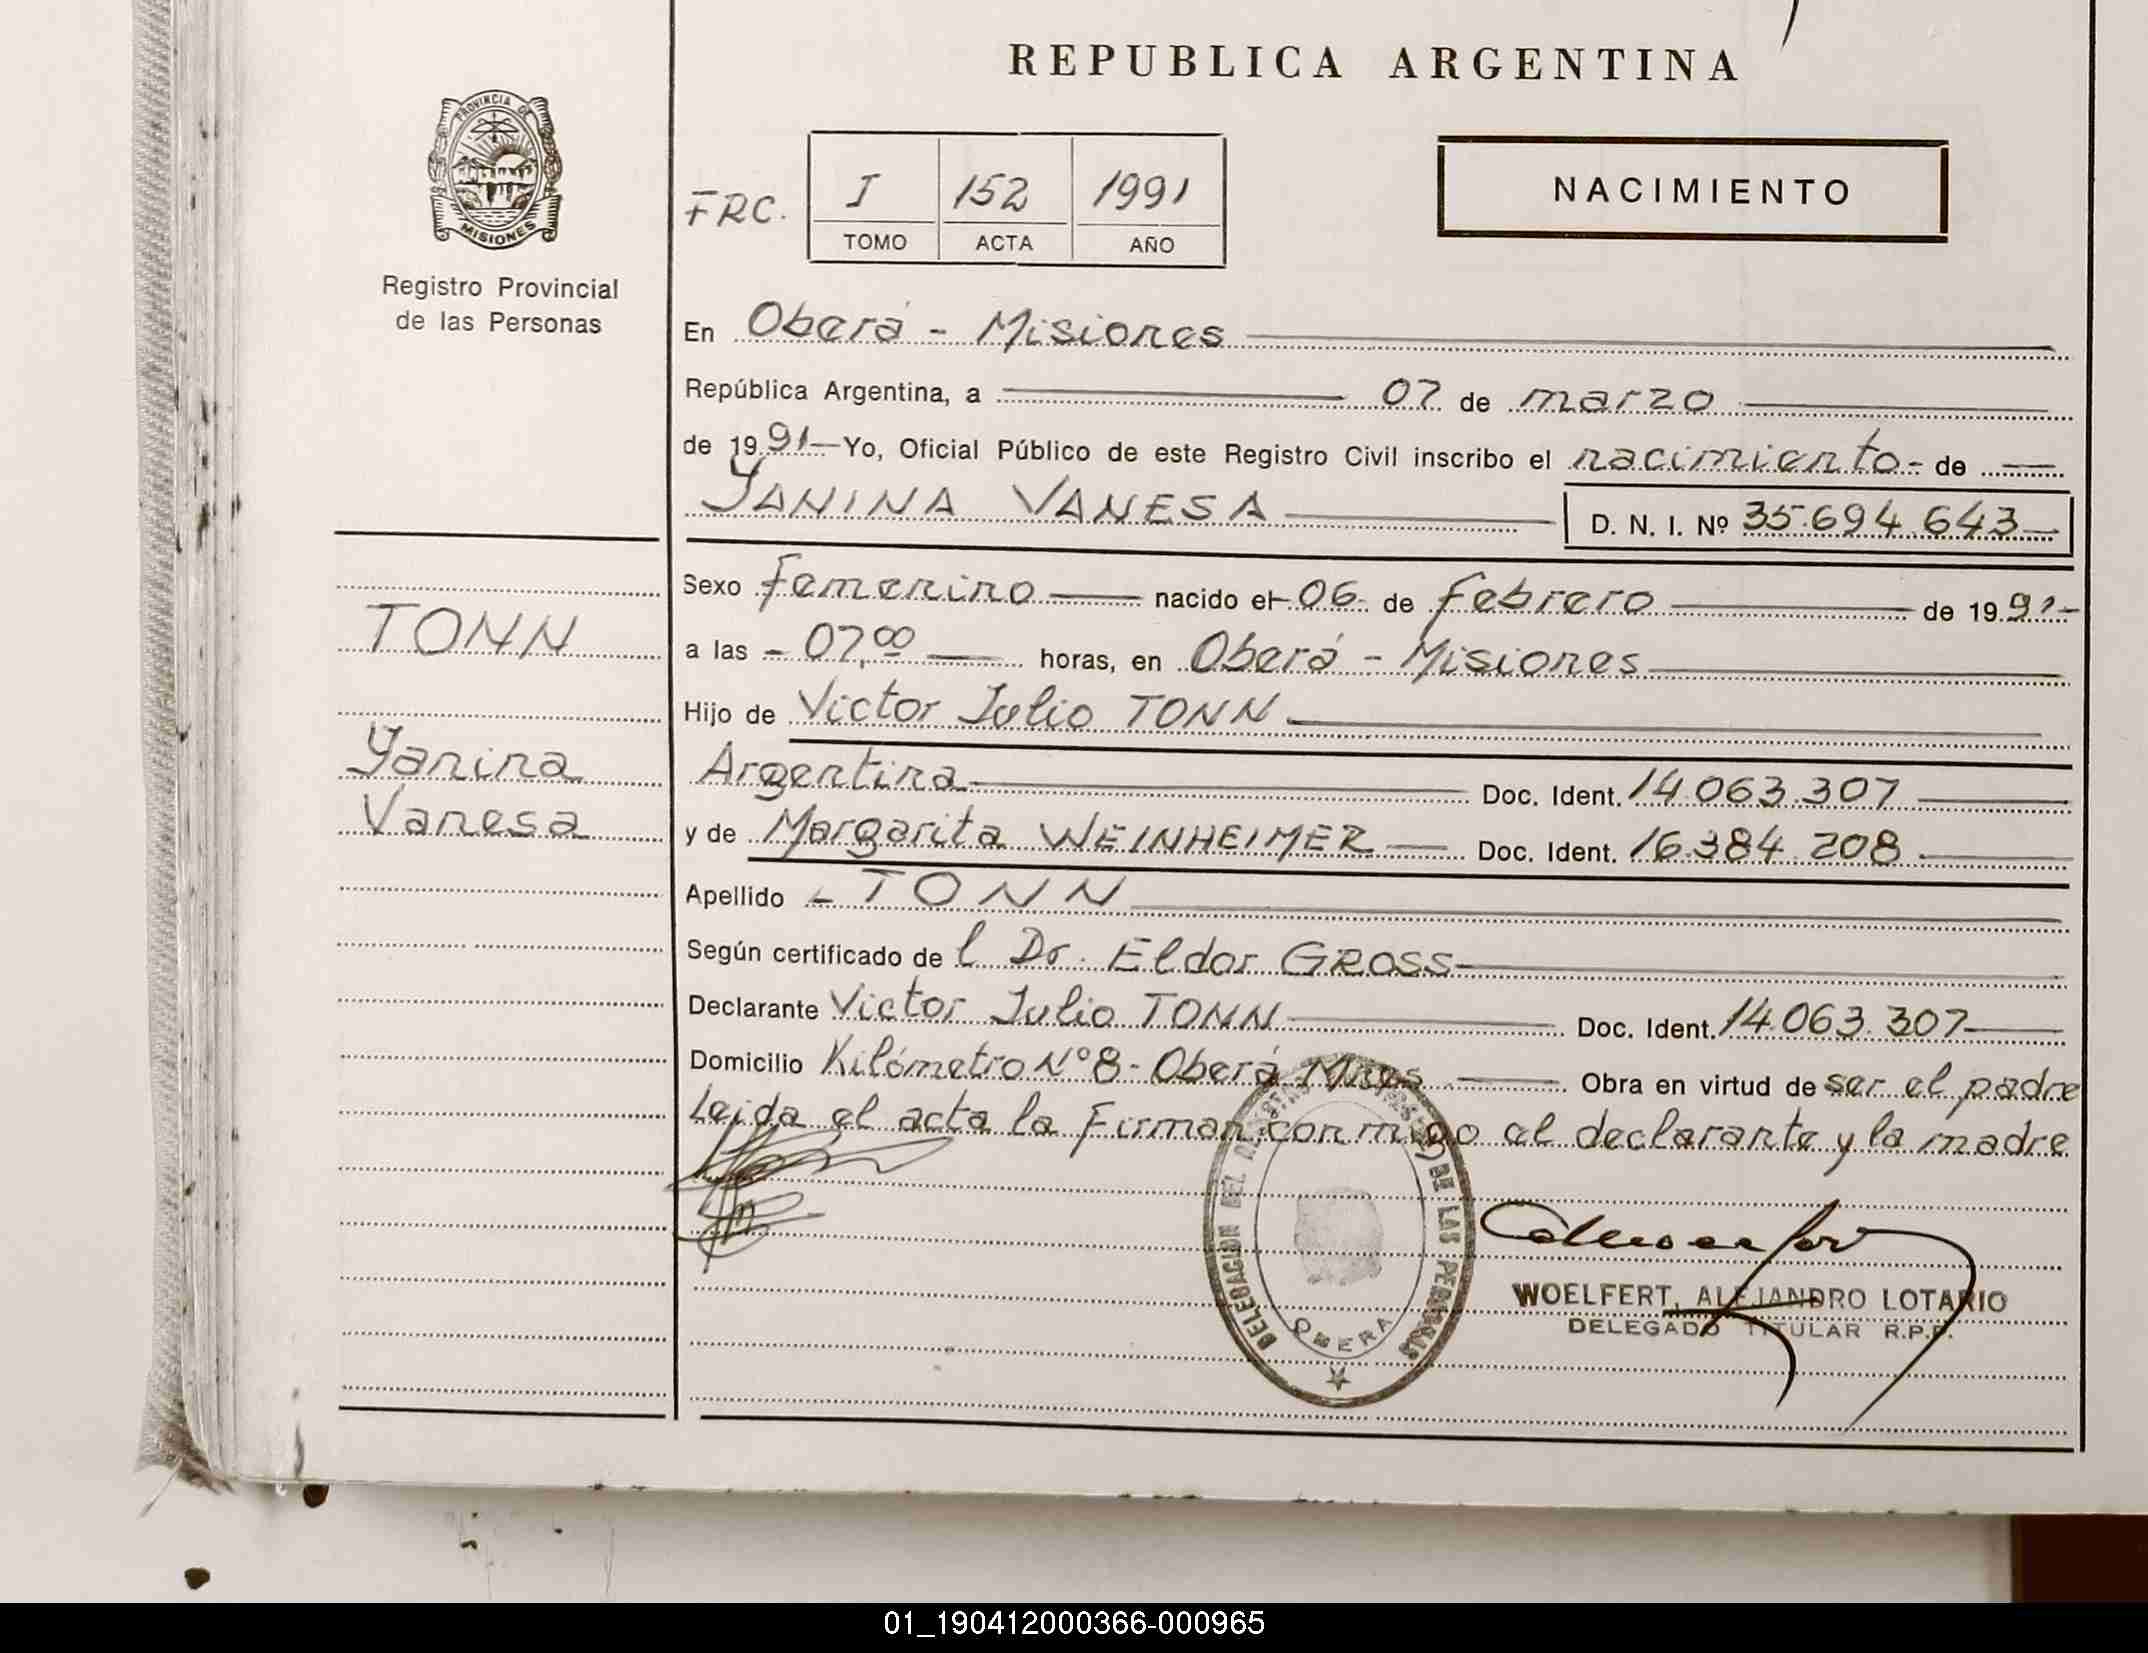 REPUBLICA ARGENTINA
PROVINCIA DE
MISIONES
Registro Provincial
de las Personas
FRC.
I 152 1991
TOMO ACTA AÑO
NACIMIENTO
En Oberá - Misiones
República Argentina, a 07 de marzo
de 1991 Yo, Oficial Público de este Registro Civil inscribo el nacimiento - de
YANINA VANESA D. N. I. Nº 35.694.643
Sexo Femenino nacido el 06 de Febrero de 1991-
TONN
a las - 07,00 horas, en Oberá - Misiones
Hijo de Victor Julio TONN
Yanina
Vanesa
Argentina Doc. Ident. 14.063.307
y de Margarita WEINHEIMER Doc. Ident. 16.384.208
Apellido - TONN
Según certificado de l Dr. Eldor GROSS
Declarante Victor Julio TONN Doc. Ident. 14.063.307
Domicilio Kilómetro Nº 8 - Oberá Mnes Obra en virtud de ser el padre
Leida el acta la Firman conmigo el declarante y la madre
DELEGACION DEL DE LAS PERSONAS
OBERA
WOELFERT, ALEJANDRO LOTARIO
DELEGADO TITULAR R.P.P.
01_190412000366-000965